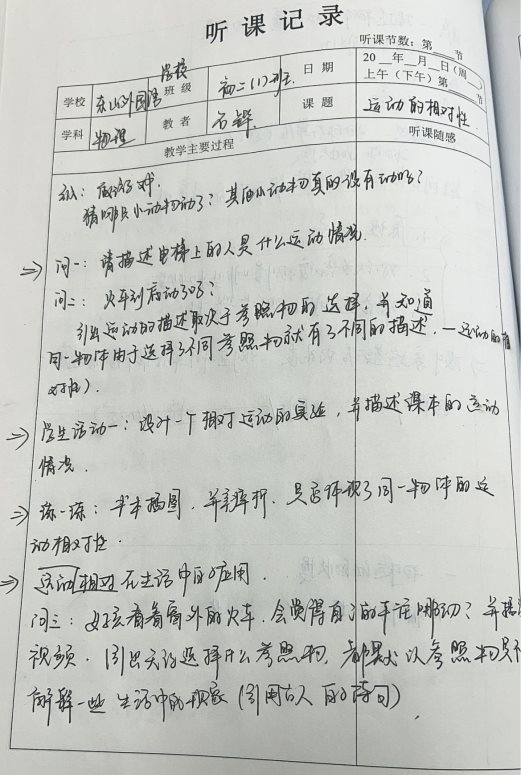 听课记录
听课节数：第 节
学校
学校 东山外国语 班级 初二(1)班 日期 20 年 月 日(周 )
上午（下午）第 节
学科 物理 教者 石 课题 运动的相对性
教学主要过程 听课随感
猜哪只小动物动了？其的小动物真的没有动吗？
问一：请描述电梯上的人是什么运动情况.
问二： 火车到后动了吗？
引出运动的描述取决于参照物的选择，并知道
同一物体由于选择了不同参照物就有了不同的描述.—运动的相
对性）.
学生活动一：设计一个相对运动的实验，并描述课本的运动
情况.
练一练：书本插图，并弄解析，是否体现了同一物体的运
动相对性.
运动相对在生活中的应用.
问三：女孩看着窗外的火车，会觉得自己的车在哪动？并播
视频. 引出关该选择什么参照物，都默以参照物是不
解释一些生活中的现象（引用古人的诗句）